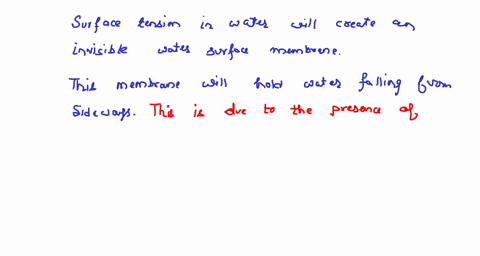 Surface tension in water will create an
invisible water surface membrane.
This membrane will hold water falling from
Sideways. This is due to the presence of,